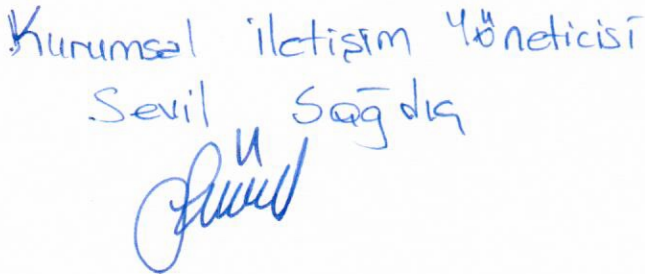 Kurumsal iletişim Yöneticisi
Sevil Sağdıç